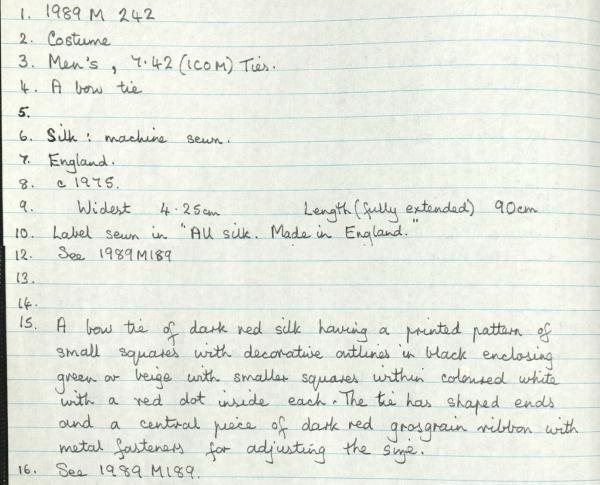 1. 1989 M 242
2. Costume
3. Men's, 7.42 (ICOM) Ties.
4. A bow tie
5.
6. Silk: machine sewn.
7. England.
8. c 1975.
9. Widest 4.25cm Length (fully extended) 90cm
10. Label sewn in "All silk. Made in England."
12. See 1989M189
13.
14.
15. A bow tie of dark red silk having a printed pattern of
small squares with decorative outlines in black enclosing
green or beige with smaller squares within coloured white
with a red dot inside each. The tie has shaped ends
and a central piece of dark red grosgrain ribbon with
metal fasteners for adjusting the size.
16. See 1989 M189.